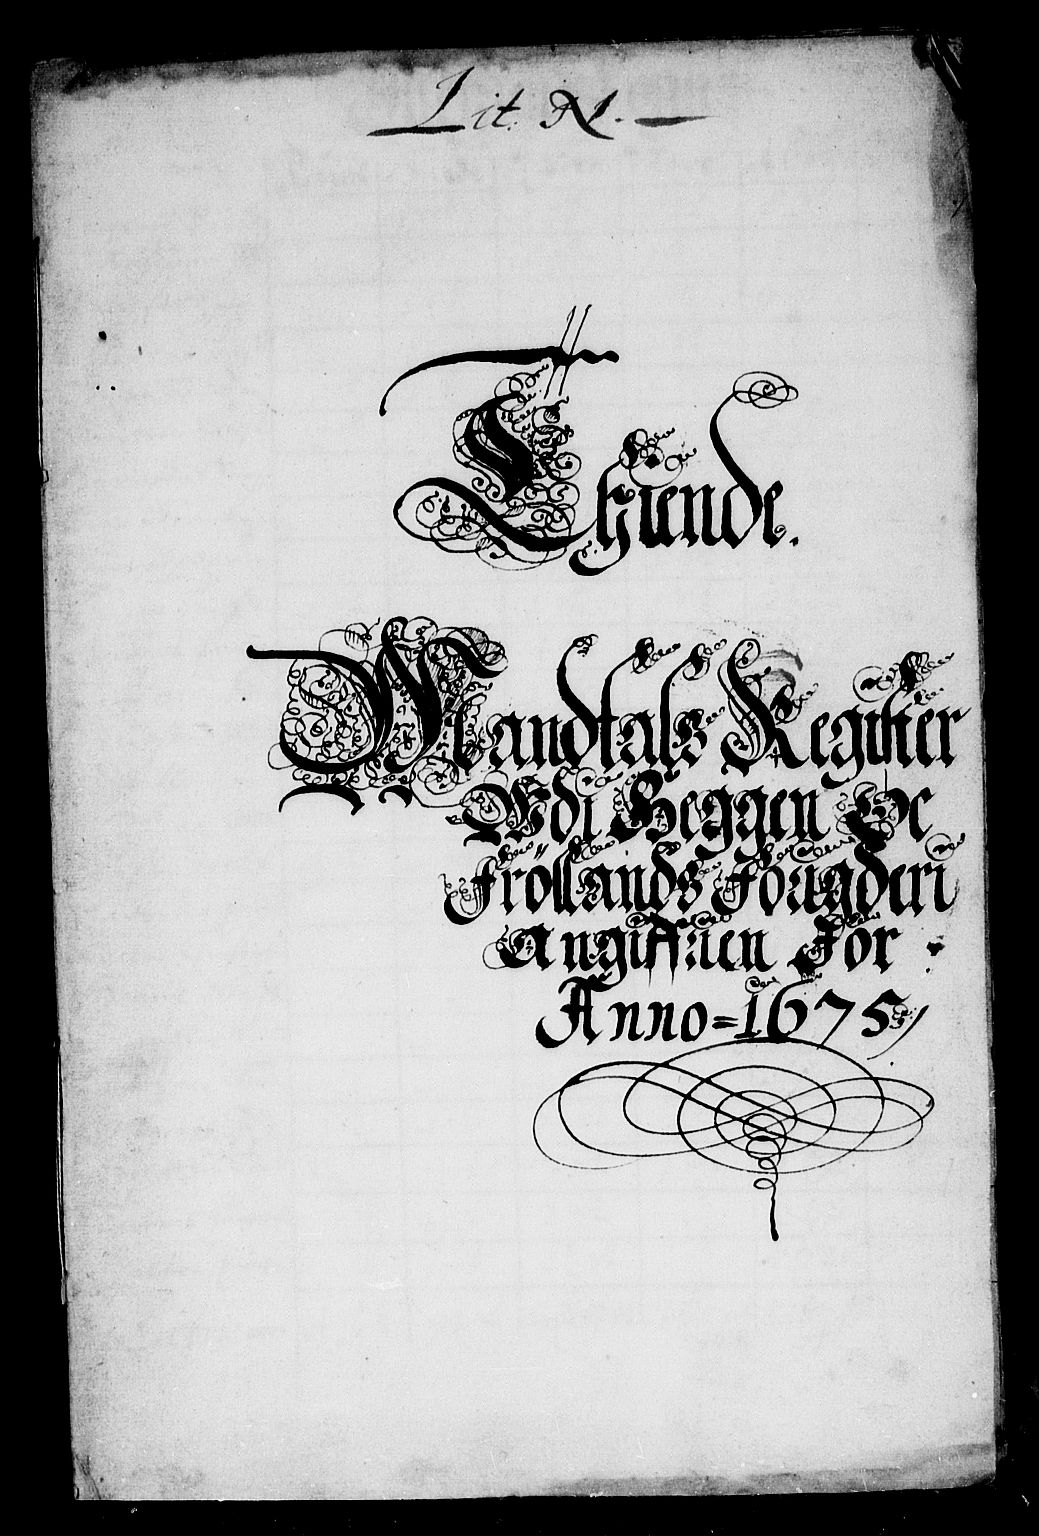 Lit. N.
Thiende.
Mandtals Register
Udi Heggen Oc
Fröllands Fougderi
Angiffuen For
Anno = 1675